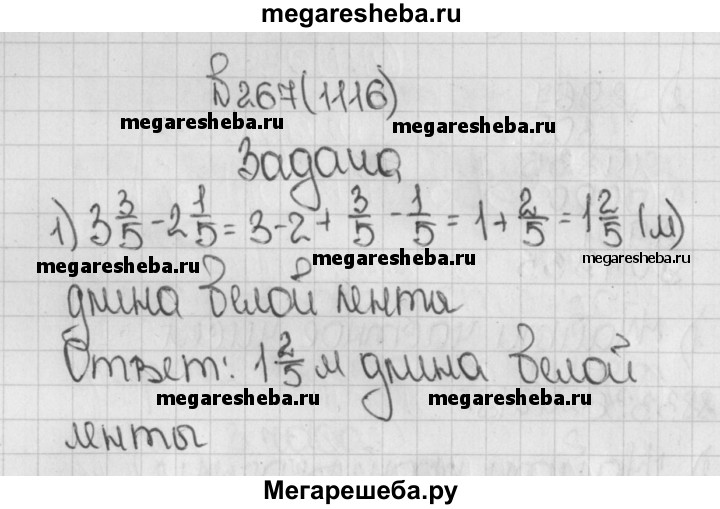 megaresheba.ru
№267(1116)
megaresheba.ru megaresheba.ru
Задача
1) 3 3/5 - 2 1/5 = 3-2 + 3/5 - 1/5 = 1 + 2/5 = 1 2/5 (м)
megaresheba.ru megaresheba.ru megaresheba.ru
длина белой ленты
Ответ: 1 2/5 м длина белой
megaresheba.ru megaresheba.ru
ленты
Мегарешеба.ру